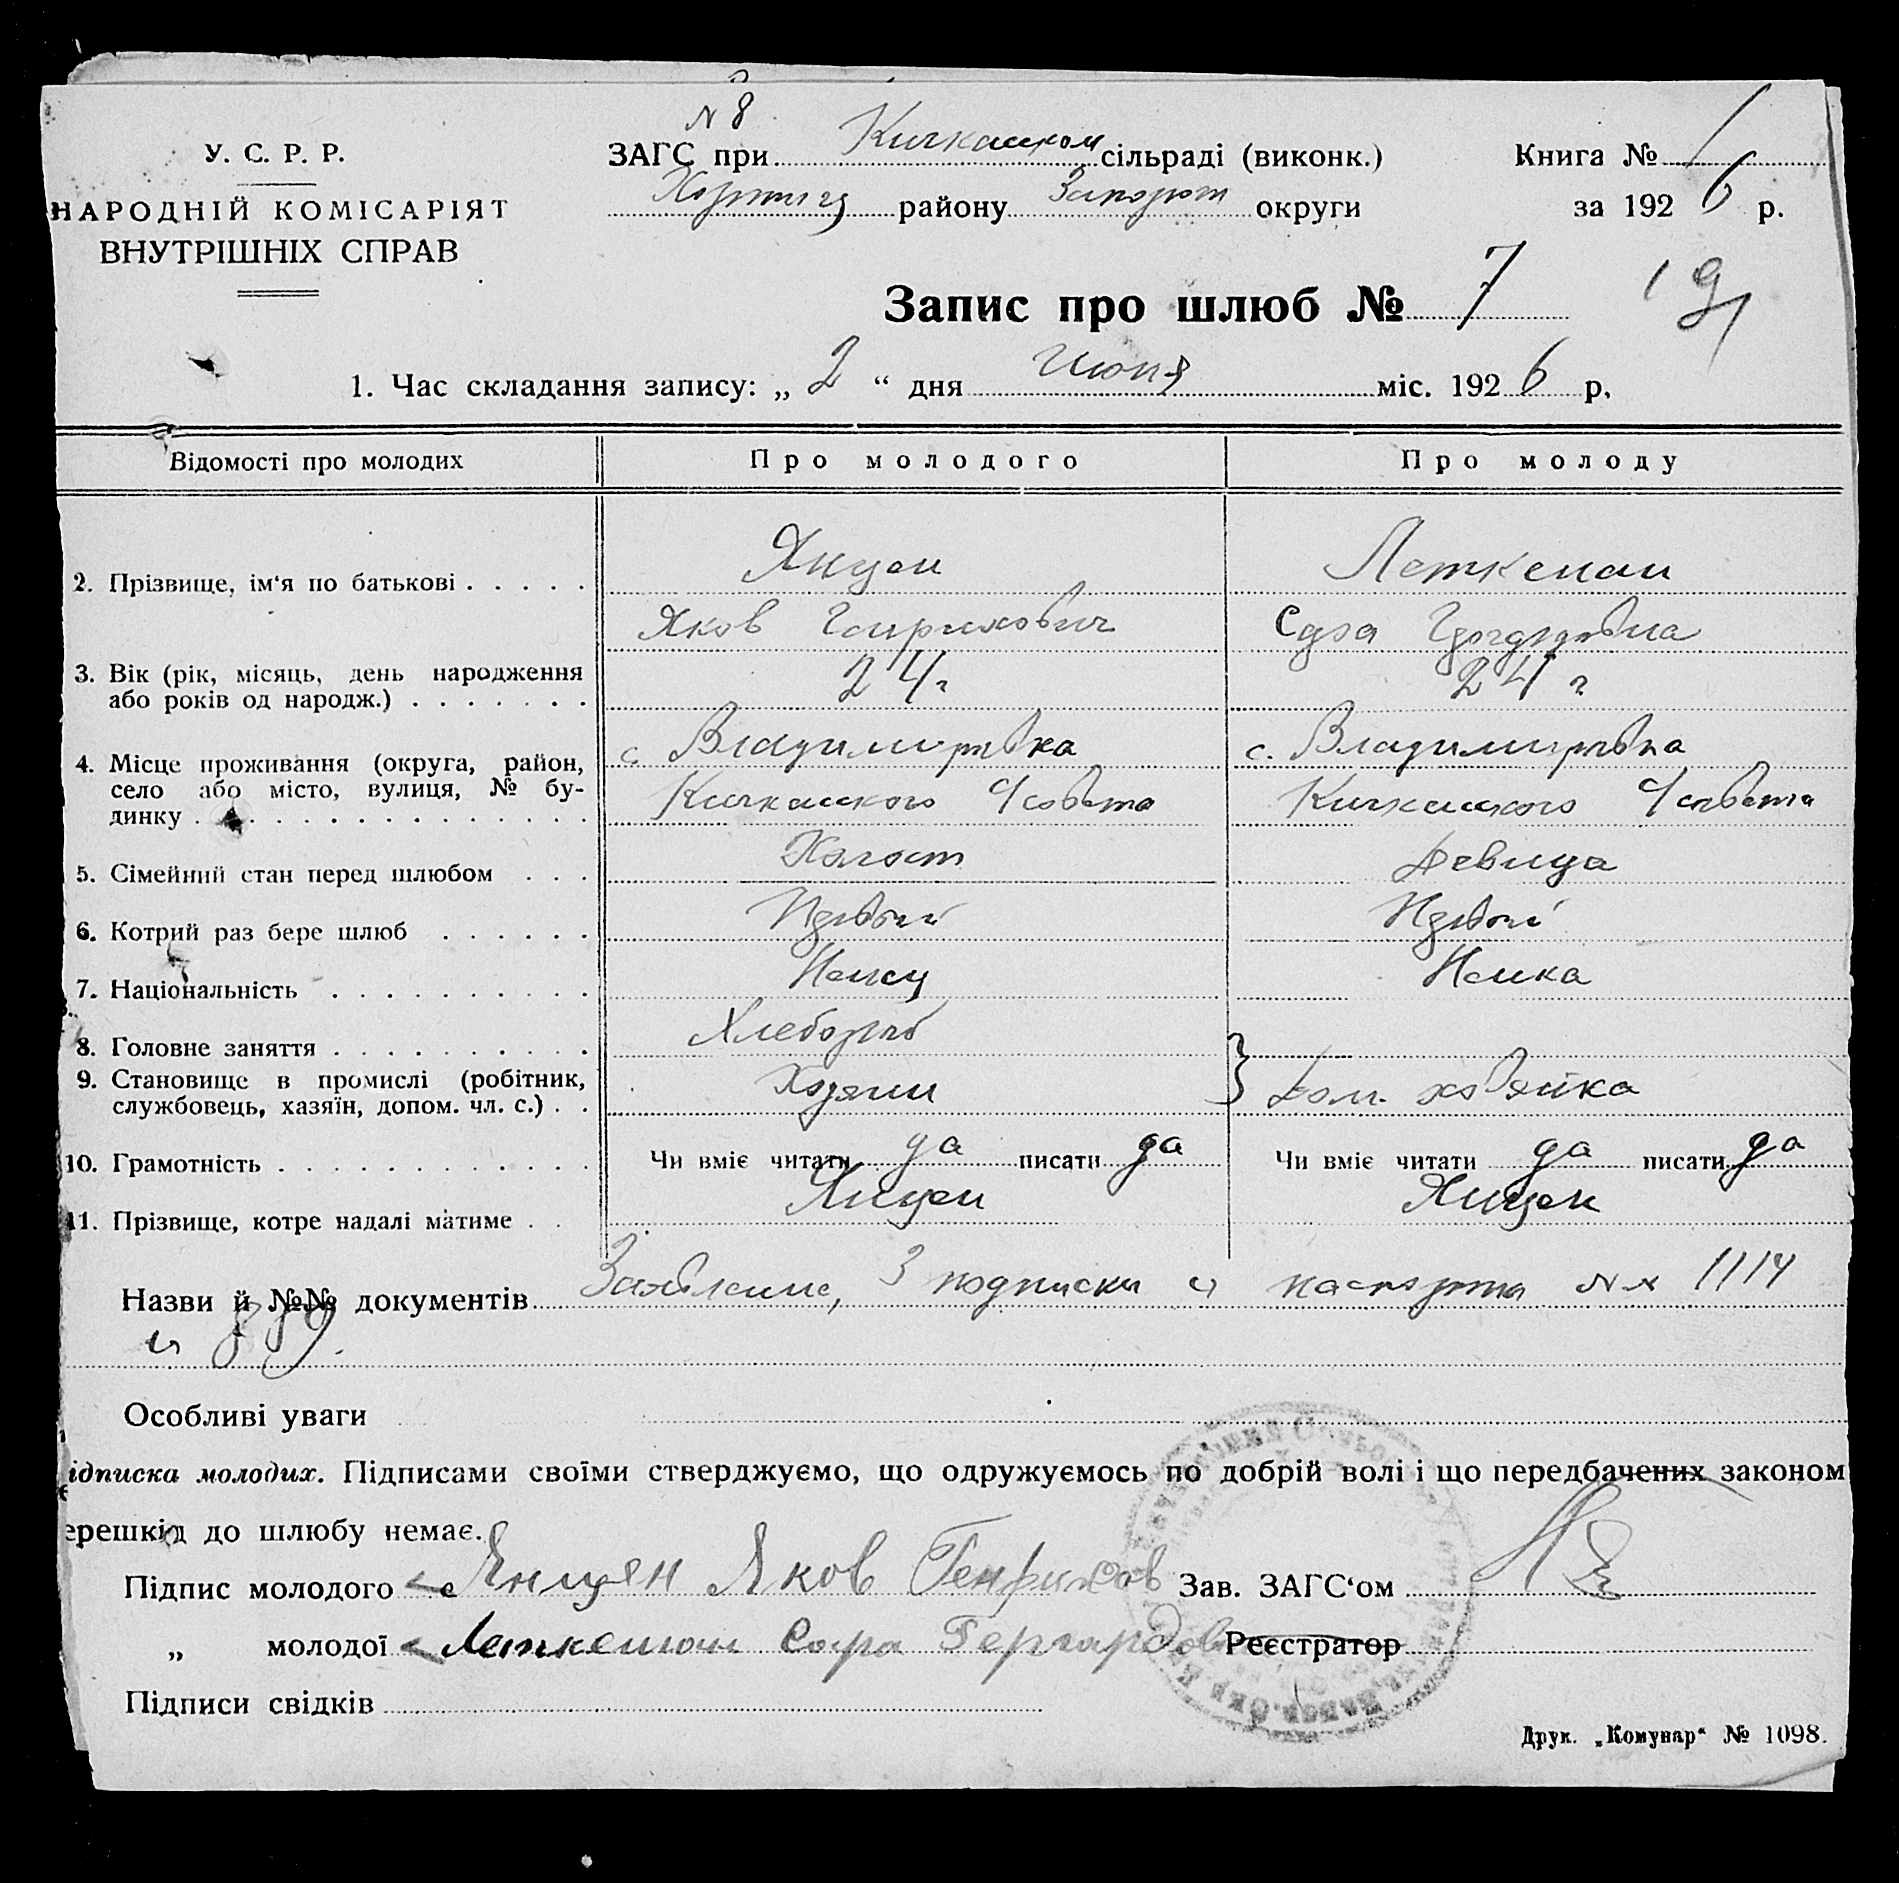 N 8
У. С. Р. Р.
ЗАГС при Кичкасском сільраді (виконк.) Книга № 1
НАРОДНІЙ КОМІСАРІЯТ
ВНУТРІШНІХ СПРАВ
Хортиц району Запорож округи за 1926 р.
Запис про шлюб № 7
1. Час складання запису: „ 2 “ дня Июня міс. 1926 р.
Відомості про молодих Про молодого Про молоду
2. Прізвище, ім‘я по батькові . . . . . Янцен Леткеман
Яков Генрихович Сара Гергардовна
3. Вік (рік, місяць, день народження
або років од народж.) . . . . . . . 24 г 24 г
4. Місце проживання (округа, район,
село або місто, вулиця, № бу-
динку . . . . . . . . . . . . . . .
с. Владимировка с. Владимировка
Кичкасского Чсовета Кичкасского Чсовета
5. Сімейний стан перед шлюбом . . . Холост Девица
6. Котрий раз бере шлюб . . . . . . Первый Первый
7. Національність . . . . . . . . . . Немец Немка
8. Головне заняття . . . . . . . . . . Хлебороб
9. Становище в промислі (робітник,
службовець, хазяїн, допом. чл. с.) . . Хозяин } Дом. хозяйка
10. Грамотність . . . . . . . . . . . . Чи вміє читати да писати да Чи вміє читати да писати да
11. Прізвище, котре надалі матиме . . Янцен Янцен
Назви й №№ документів Заявление, 3 подписки и паспорта NN 1114
и 889.
Особливі уваги
ідписка молодих. Підписами своїми стверджуємо, що одружуємось по добрій волі і що передбачених законом
ерешкід до шлюбу немає.
Підпис молодого Янцен Яков Генрихов Зав. ЗАГС‘ом
„ молодої Леткеман Сара Гергардов Реєстратор
Підписи свідків
Друк. „Комунар“ № 1098.